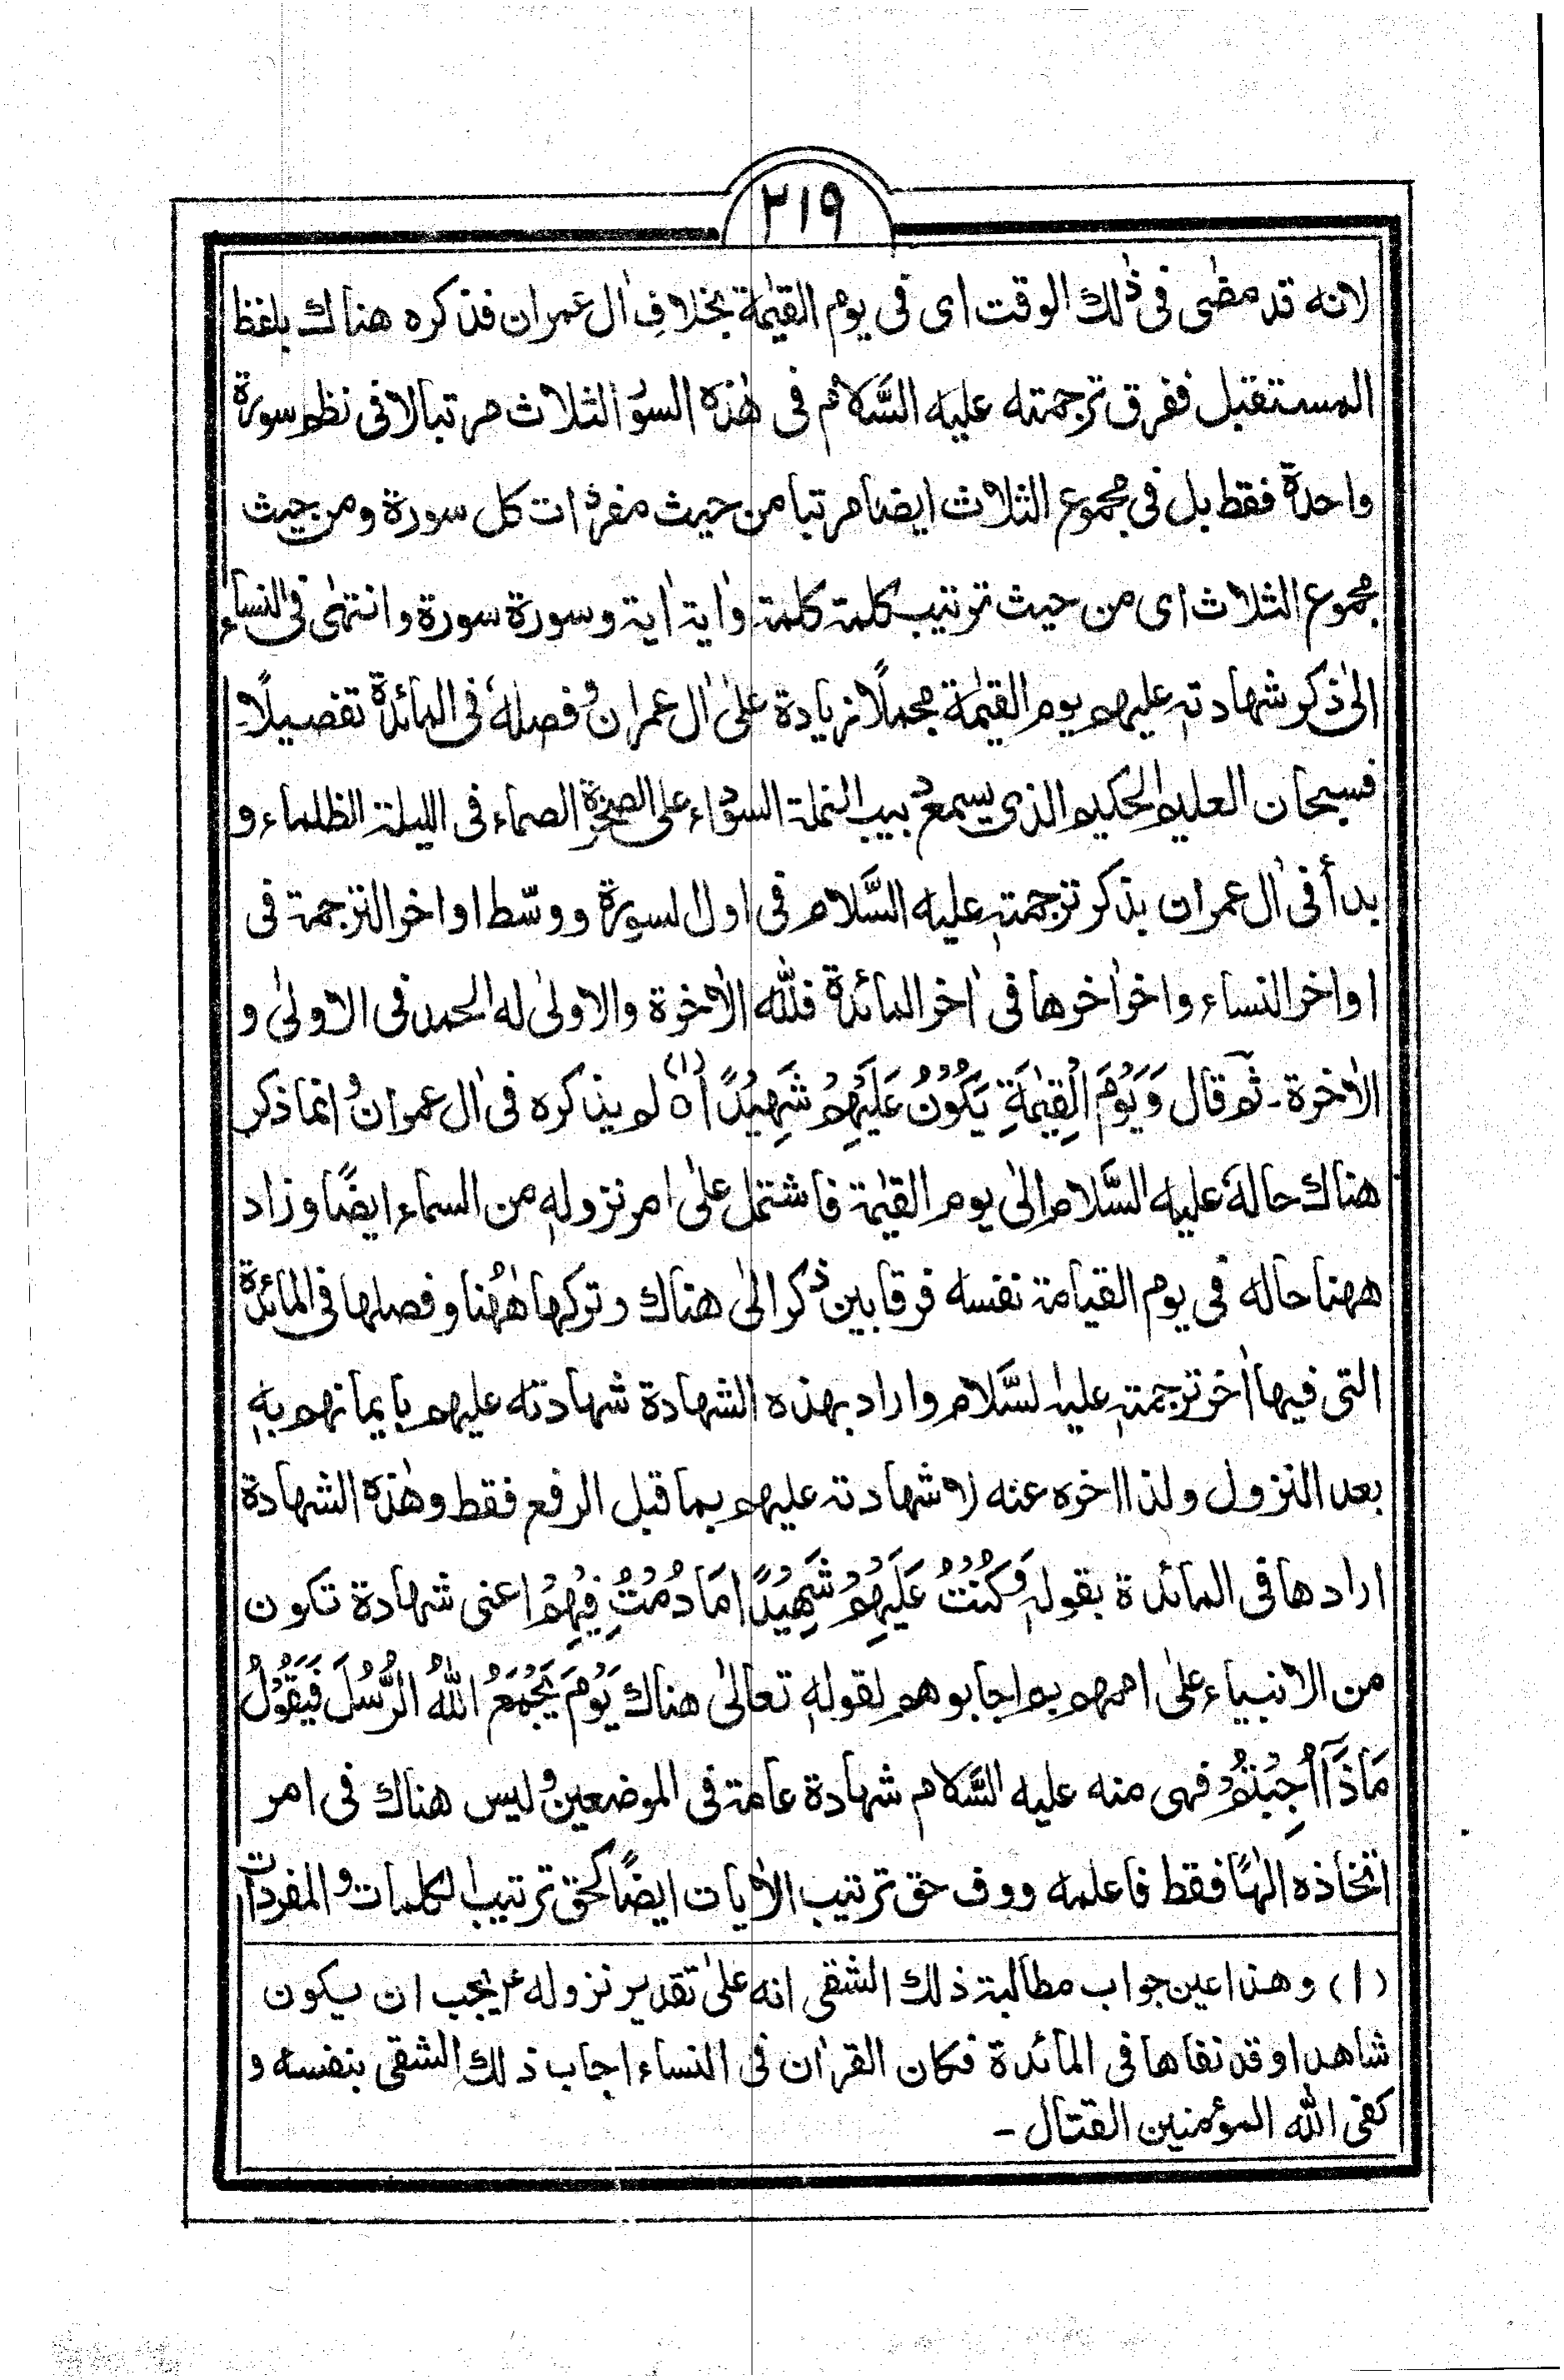 ۲۱۹
لانه قد مضٰى فى ذٰلك الوقت اى فى يوم القيٰمة بخلافِ اٰل عمران فذكره هناك بلفظ
المستقبل ففرق ترجمته عليه السَّلام فى هٰذه السور الثلاث مرتبا لا فى نظم سورة
واحدة فقط بل فى مجموع الثلاث ايضا مرتبا من حيث مفردات كل سورة ومن حيث
مجموع الثلاث اى من حيث ترتيب كلمة كلمة واٰية اٰية وسورة سورة وانتهٰى فى النساء
الىٰ ذكر شهادتهٖ عليهم يوم القيٰمة مجملًا زيادة علىٰ اٰل عمران وفصلهٗ فى المائدة تفصيلًا۔
فسبحان العليم الحكيم الذى يسمع دبيب النملة السوداء على الصخرة الصماء فى الليلة الظلماء و
بدأ فى اٰل عمران بذكر ترجمتهٖ عليه السَّلام فى اول السورة ووسّط اواخر الترجمة فى
اواخر النساء واخر اٰخرها فى اٰخر المائدة فللّٰه الاٰخرة والاولىٰ له الحمد فى الاولىٰ و
الاٰخرة۔ ثم قال وَيَوْمَ الْقِيٰمَةِ يَكُوْنُ عَلَيْهِمْ شَهِيْدًا ه (۱) لم يذكره فى اٰل عمران وانما ذكر
هناك حالهٗ عليه السَّلام الىٰ يوم القيٰمة فاشتمل علىٰ امر نزولهٖ من السماء ايضًا وزاد
ههنا حاله فى يوم القيامة نفسه فرقا بين ذكر الىٰ هناك وتركها هٰهُنا وفصلها فى المائدة
التى فيها اٰخر ترجمتهٖ عليه السَّلام واراد بهذه الشهادة شهادته عليهم بايمانهم بهٖ
بعد النزول ولذا اخره عنه لا شهادته عليهم بما قبل الرفع فقط وهٰذه الشهادة
ارادها فى المائدة بقولهٖ وَكُنْتُ عَلَيْهِمْ شَهِيْدًا مَا دُمْتُ فِيْهِمْ اعنى شهادة تكون
من الانبياء علىٰ اممهم بم اجابوهم لقولهٖ تعالىٰ هناك يَوْمَ يَجْمَعُ اللّٰهُ الرُّسُلَ فَيَقُوْلُ
مَاذَآ اُجِبْتُمْ فهى منه عليه السَّلام شهادة عامة فى الموضعين وليس هناك فى امر
اتخاذه الٰهًا فقط فاعلمه ووف حق ترتيب الاٰيات ايضًا كحق ترتيب الكلمات والمفردات
(۱) وهذا عين جواب مطالبة ذلك الشقى انه علىٰ تقدير نزوله يجب ان يكون
شاهدا وقد نفاها فى المائدة فكان القراٰن فى النساء اجاب ذلك الشقى بنفسه و
كفى اللّٰه المؤمنين القتال۔